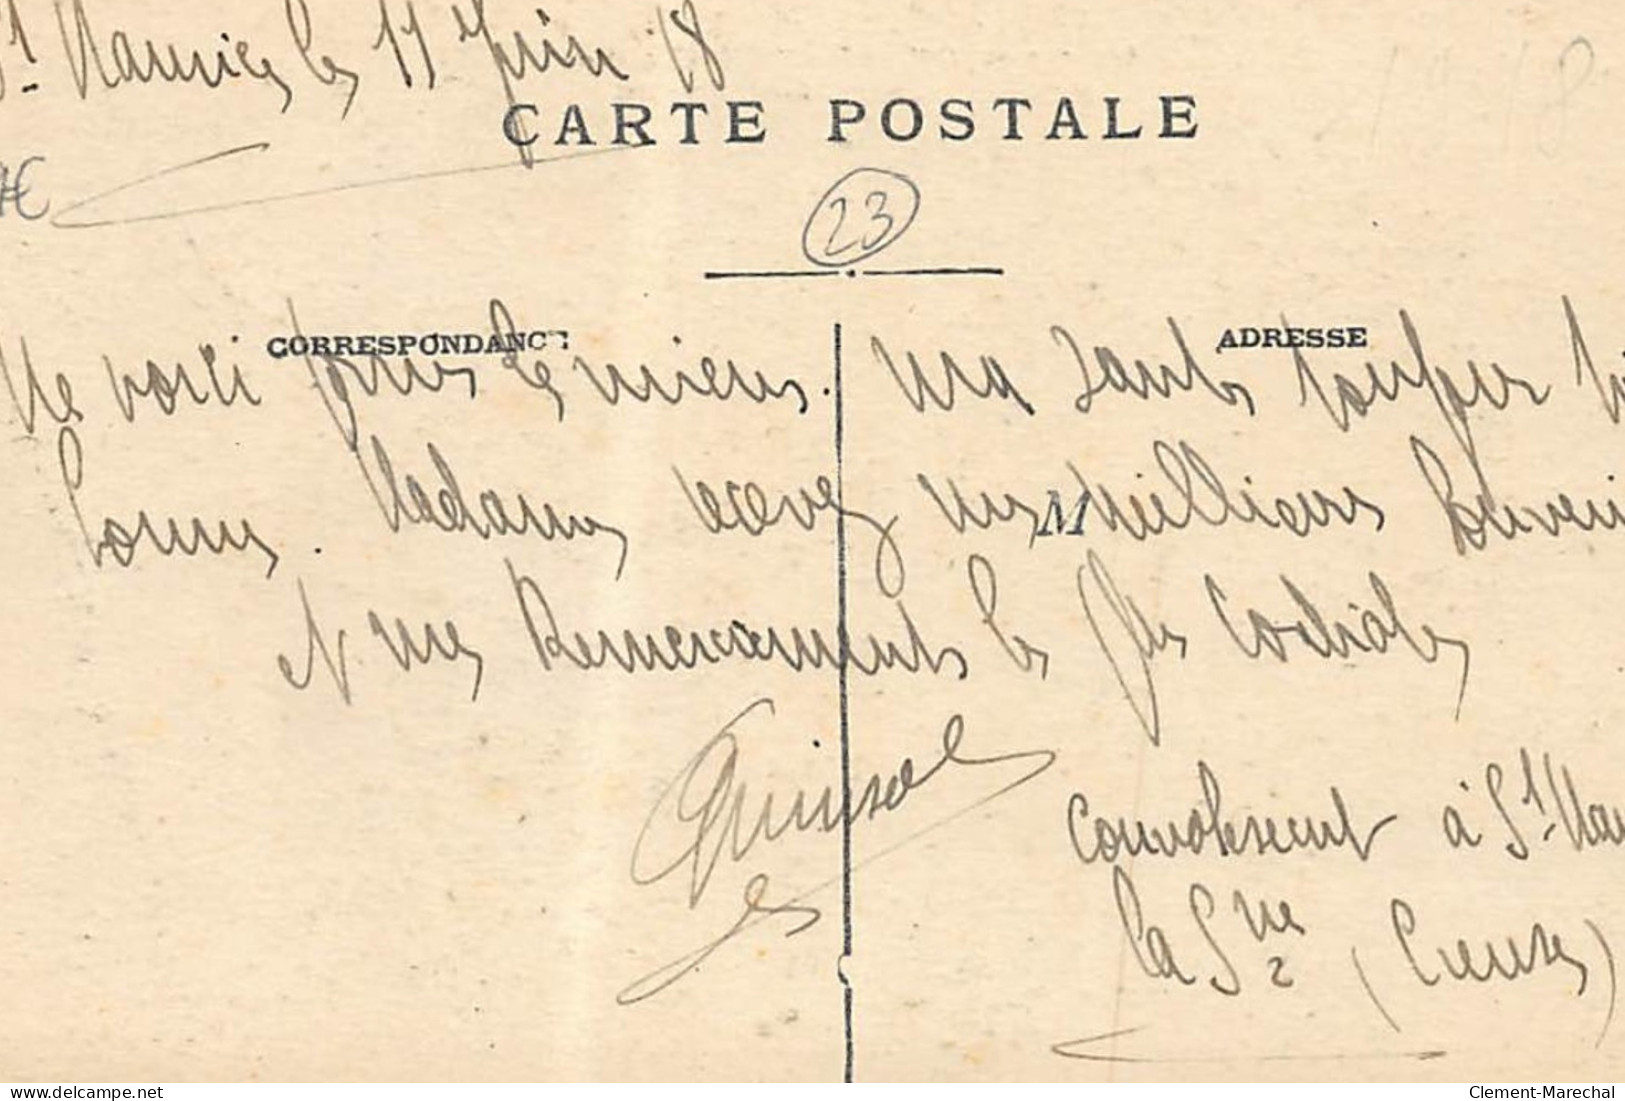 St Maurice le 11 Juin 18
CARTE POSTALE
23
CORRESPONDANCE
ADRESSE
Me voici pour le mieux. Ma Santé toujour
bonne. Madame recevez mes Meilleurs Souveni
M
et mes Remerciements les plus Cordiales
Convalescent à St Mau
La Sne (Creuse)
www.delcampe.net
Clement-Marechal